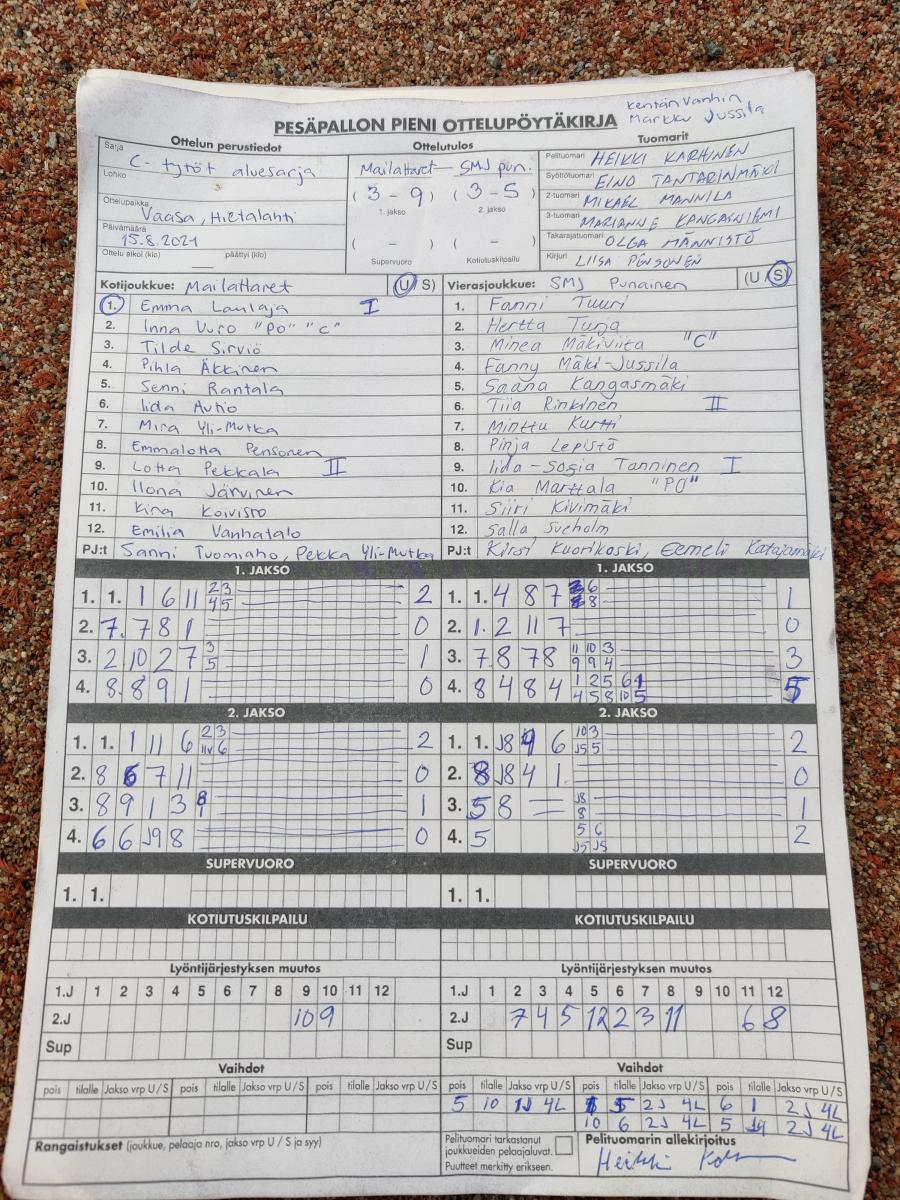 kentän vanhin
Markku Jussila
PESÄPALLON PIENI OTTELUPÖYTÄKIRJA
Ottelun perustiedot Ottelutulos Tuomarit
Sarja C-tytöt aluesarja
Lohko
Ottelupaikka Vaasa, Hietalahti
Päivämäärä 15.8.2021
Ottelu alkoi (klo) päättyi (klo)
Mailattaret — SMJ pun.
(3 - 9) (3 - 5)
1. jakso 2. jakso
( - ) ( - )
Supervuoro Kotiutuskilpailu
Pelituomari HEIKKI KARHINEN
Syöttötuomari EINO TANTARINMÄKI
2-tuomari MIKAEL MANNILA
3-tuomari MARIANNE KANGASNIEMI
Takarajatuomari OLGA MÄNNISTÖ
Kirjuri LIISA PENSONEN
Kotijoukkue: Mailattaret (U S)
1. Emma Laulaja I
2. Inna Vuro "PO" "C"
3. Tilde Sirviö
4. Pihla Äkkinen
5. Senni Rantala
6. Iida Autio
7. Mira Yli-Mutka
8. Emmalotta Pensonen
9. Lotta Pekkala II
10. Ilona Järvinen
11. Kina Koivisto
12. Emilia Vanhatalo
PJ:t Sanni Tuomiaho, Pekka Yli-Mutka
Vierasjoukkue: SMJ Punainen (U S)
1. Fanni Tuuri
2. Hertta Turja
3. Minea Mäkiviita "C"
4. Fanny Mäki-Jussila
5. Saana Kangasmäki
6. Tiia Rinkinen II
7. Minttu Kurtti
8. Pinja Lepistö
9. Iida-Sofia Tanninen I
10. Kia Marttala "PO"
11. Siiri Kivimäki
12. Salla Sveholm
PJ:t Kirsi Kuorikoski, Eemeli Katajamäki
1. JAKSO
1. 1. 1 6 11 2 3 2
4 5
2. 7. 7 8 1 0
3. 2 10 2 7 3 1
5
4. 8. 8 9 1 0
1. JAKSO
1. 1. 4 8 7 6 1
8
2. 1. 2 11 7 0
3. 7. 8 7 8 11 10 3 3
9 9 4
4. 8 4 8 4 1 2 5 6 1 5
4 5 8 10 5
2. JAKSO
1. 1. 1 11 6 2 3 2
6
2. 8 6 7 11 0
3. 8 9 1 3 1
4. 6 6 J9 8 0
2. JAKSO
1. 1. J8 9 6 10 3 2
J5 5
2. 8 J8 4 1. 0
3. 5 8 — J8 1
8
4. 5 5 6 2
J5 J5
SUPERVUORO SUPERVUORO
1. 1. 1. 1.
KOTIUTUSKILPAILU KOTIUTUSKILPAILU
Lyöntijärjestyksen muutos
1.J 1 2 3 4 5 6 7 8 9 10 11 12
2.J 10 9
Sup
Lyöntijärjestyksen muutos
1.J 1 2 3 4 5 6 7 8 9 10 11 12
2.J 7 4 5 12 2 3 11 6 8
Sup
Vaihdot
pois tilalle Jakso vrp U/S pois tilalle Jakso vrp U/S pois tilalle Jakso vrp U/S
Vaihdot
pois tilalle Jakso vrp U/S pois tilalle Jakso vrp U/S pois tilalle Jakso vrp U/S
5 10 1J 4L 5 2J 4L 6 1 2J 4L
10 6 2J 4L 5 2J 4L
Rangaistukset (joukkue, pelaaja nro, jakso vrp U / S ja syy)
Pelituomari tarkastanut
joukkueiden pelaajaluvat.
Puutteet merkitty erikseen.
Pelituomarin allekirjoitus
Heikki